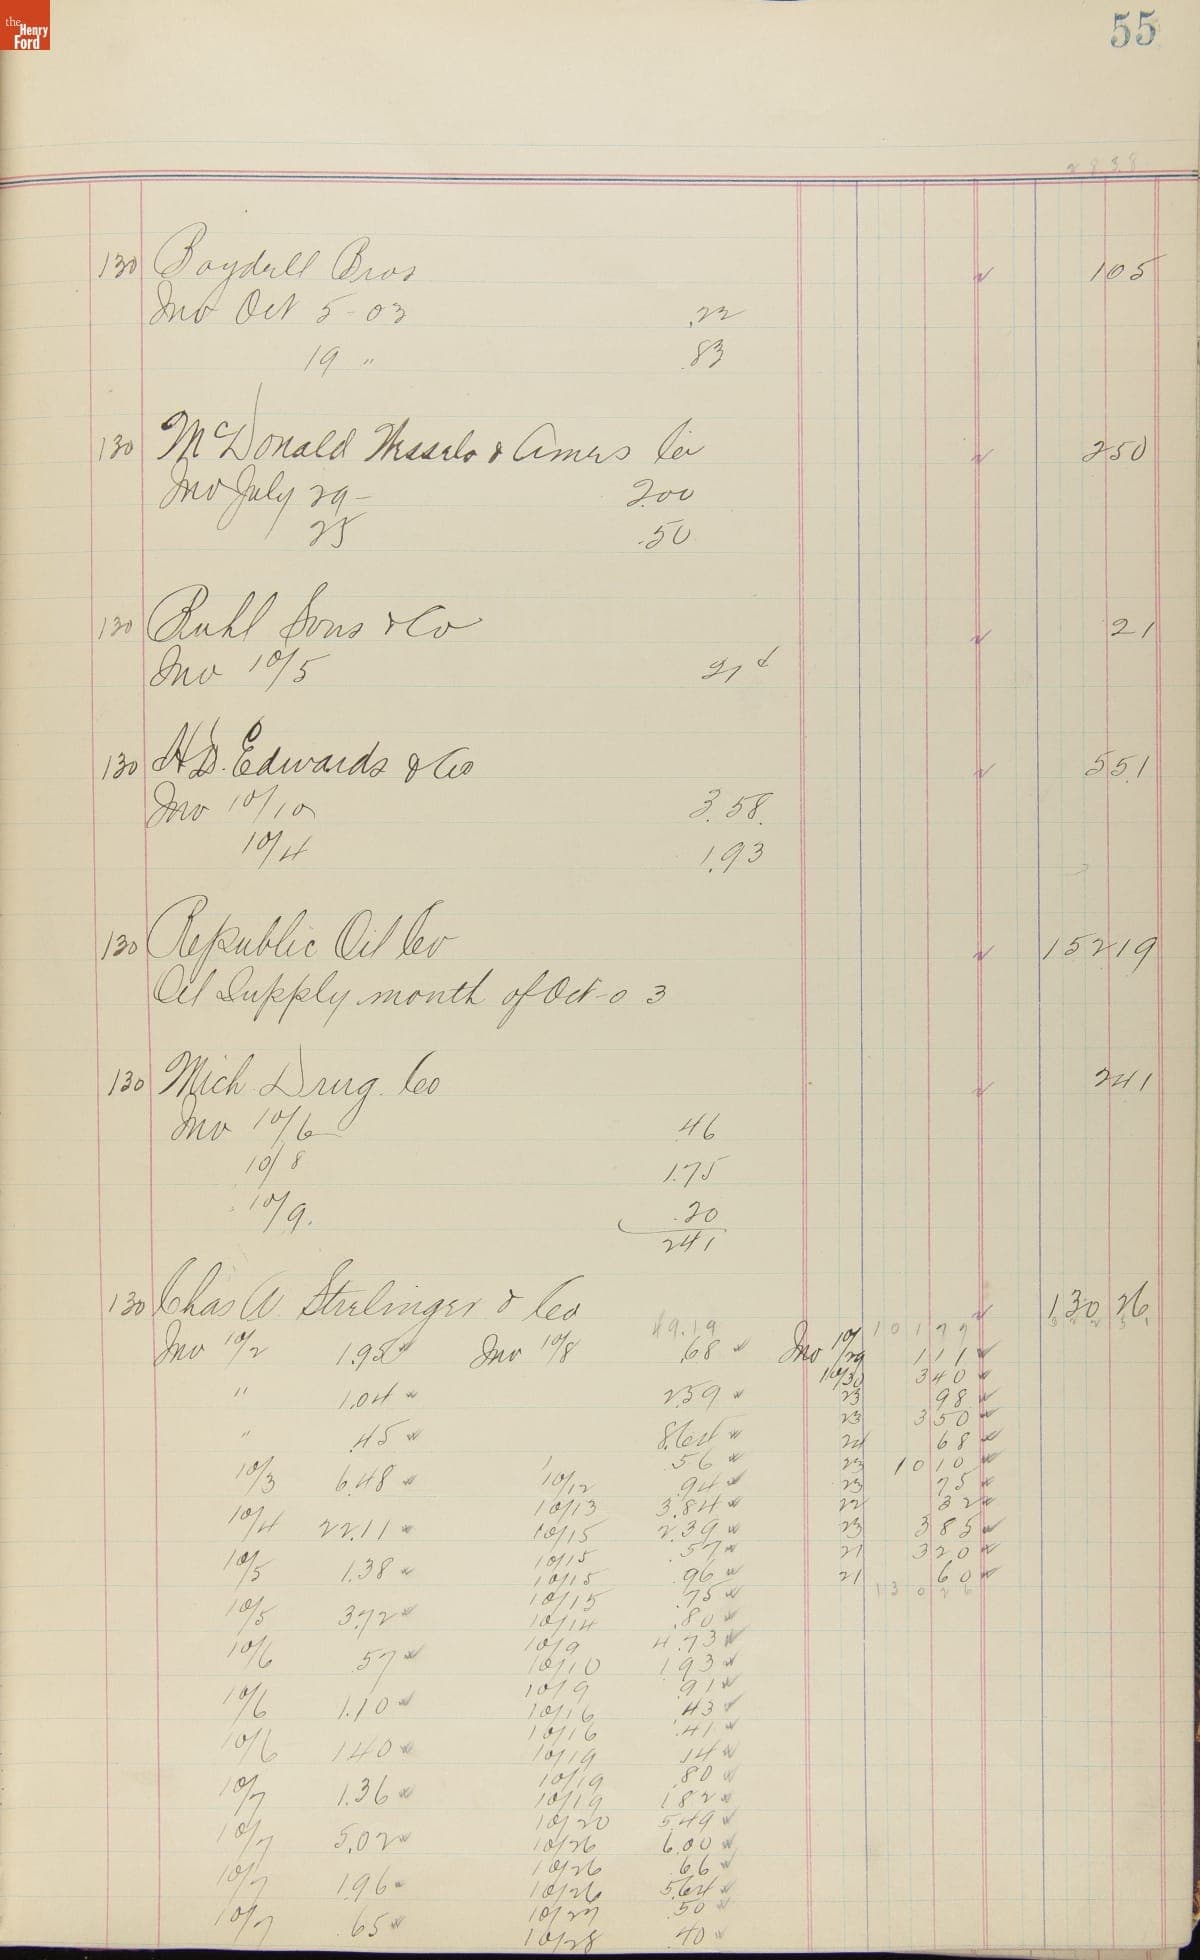 the Henry Ford
55
2838
130 Boydell Bros 105
Inv Oct 5-03 .22
19 " .83
130 McDonald Wessels & Amers Co 250
Inv July 29- 2.00
25 .50
130 Ruhl Sons & Co 21
Inv 10/5 21¢
130 H.D. Edwards & Co 551
Inv 10/10 3.58
10/4 1.93
130 Republic Oil Co 15219
Oil Supply month of Oct-03
130 Mich Drug. Co 241
Inv 10/6 .46
10/8 1.75
10/9. .20
241
130 Chas A. Strelinger & Co 130 26
49.19 10177
Inv 10/2 1.95 Inv 10/8 .68 Inv 10/29 111
10/30 340
" 1.04 2.59 23 98
23 350
" .45 8.64 24 68
.56 23 1010
10/3 6.48 10/12 .94 23 75
10/13 3.84 22 32
10/4 22.11 10/15 2.39 23 385
10/15 .57 21 320
10/5 1.38 10/15 .96 21 60
10/15 .75 13026
10/5 3.72 10/14 .80
10/9 4.73
10/6 .57 10/10 1.93
10/9 .91
10/6 1.10 10/16 .43
10/16 .41
10/6 1.40 10/19 .14
10/19 .80
10/7 1.36 10/19 1.82
10/20 5.49
10/7 5.02 10/26 6.00
10/26 .66
10/7 1.96 10/26 5.64
10/27 .50
10/7 .65 10/28 .40